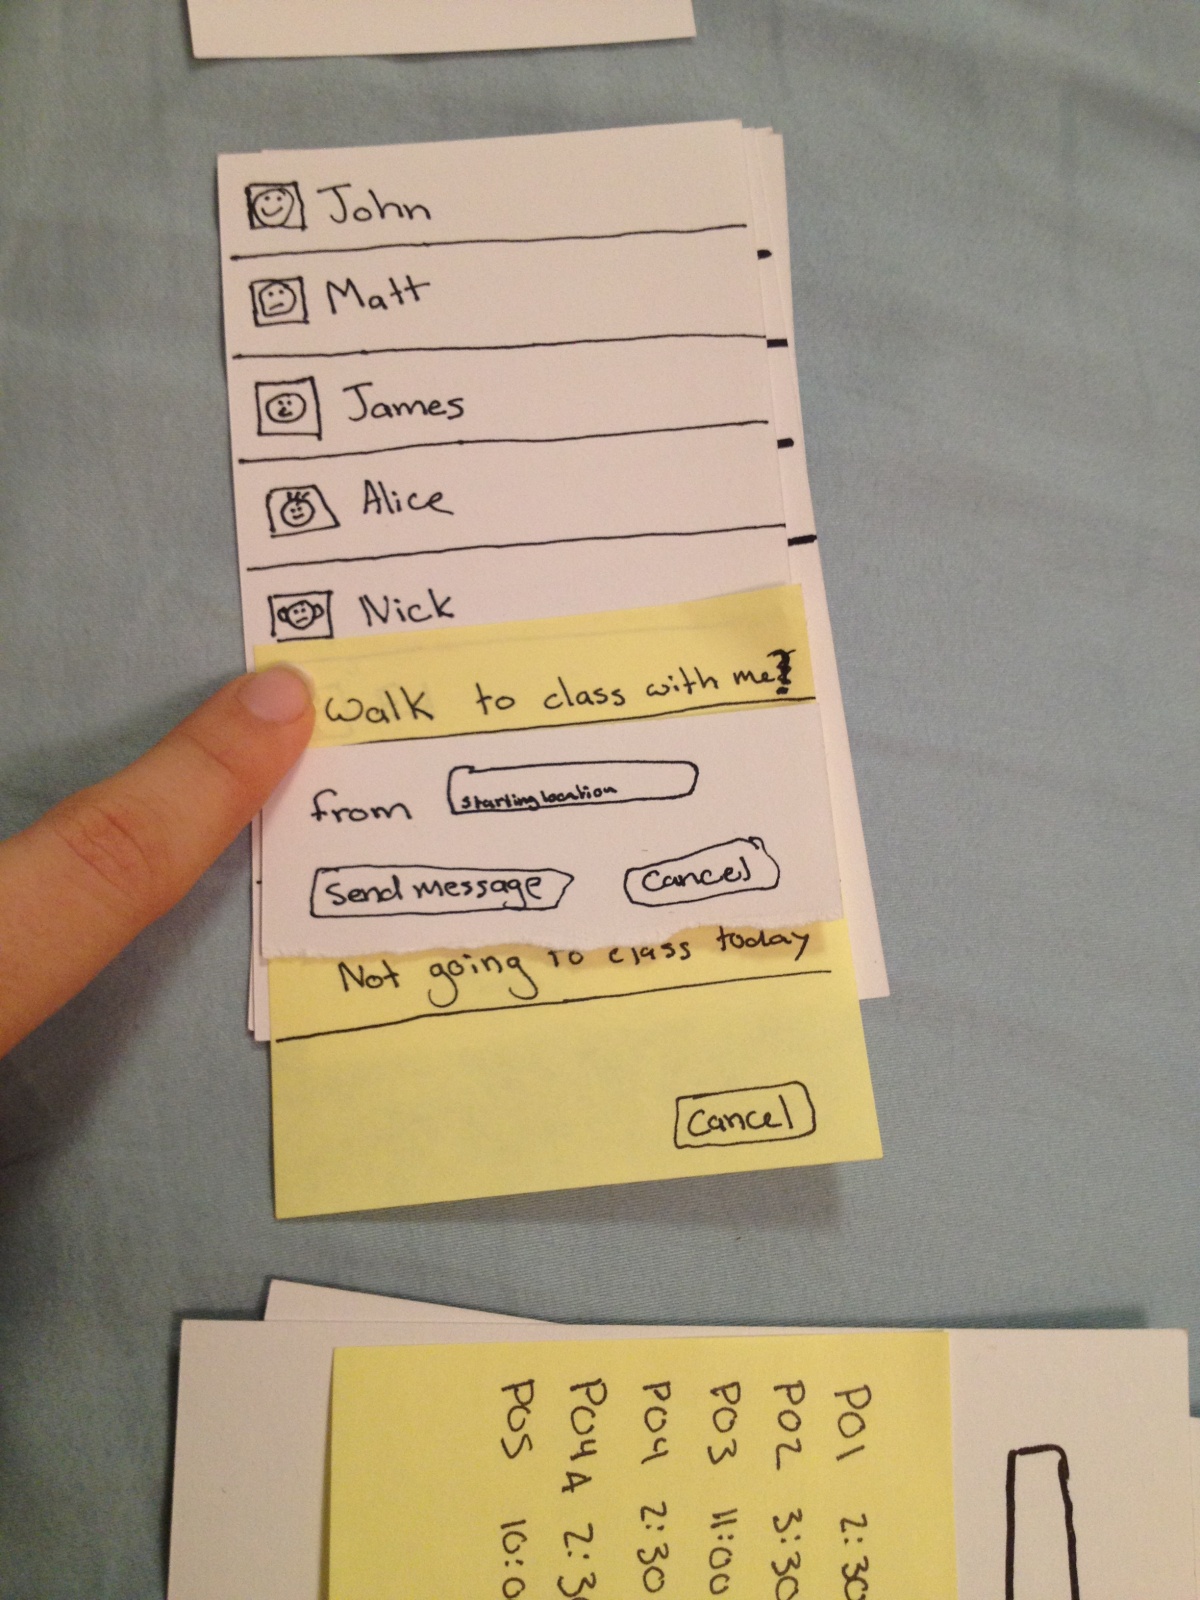 John
Matt
James
Alice
Nick
Walk to class with me?
from starting location
Send message Cancel
Not going to class today
Cancel
P01 2:30
P02 3:30
P03 11:00
P04 2:30
P04A 2:3
P05 10:0